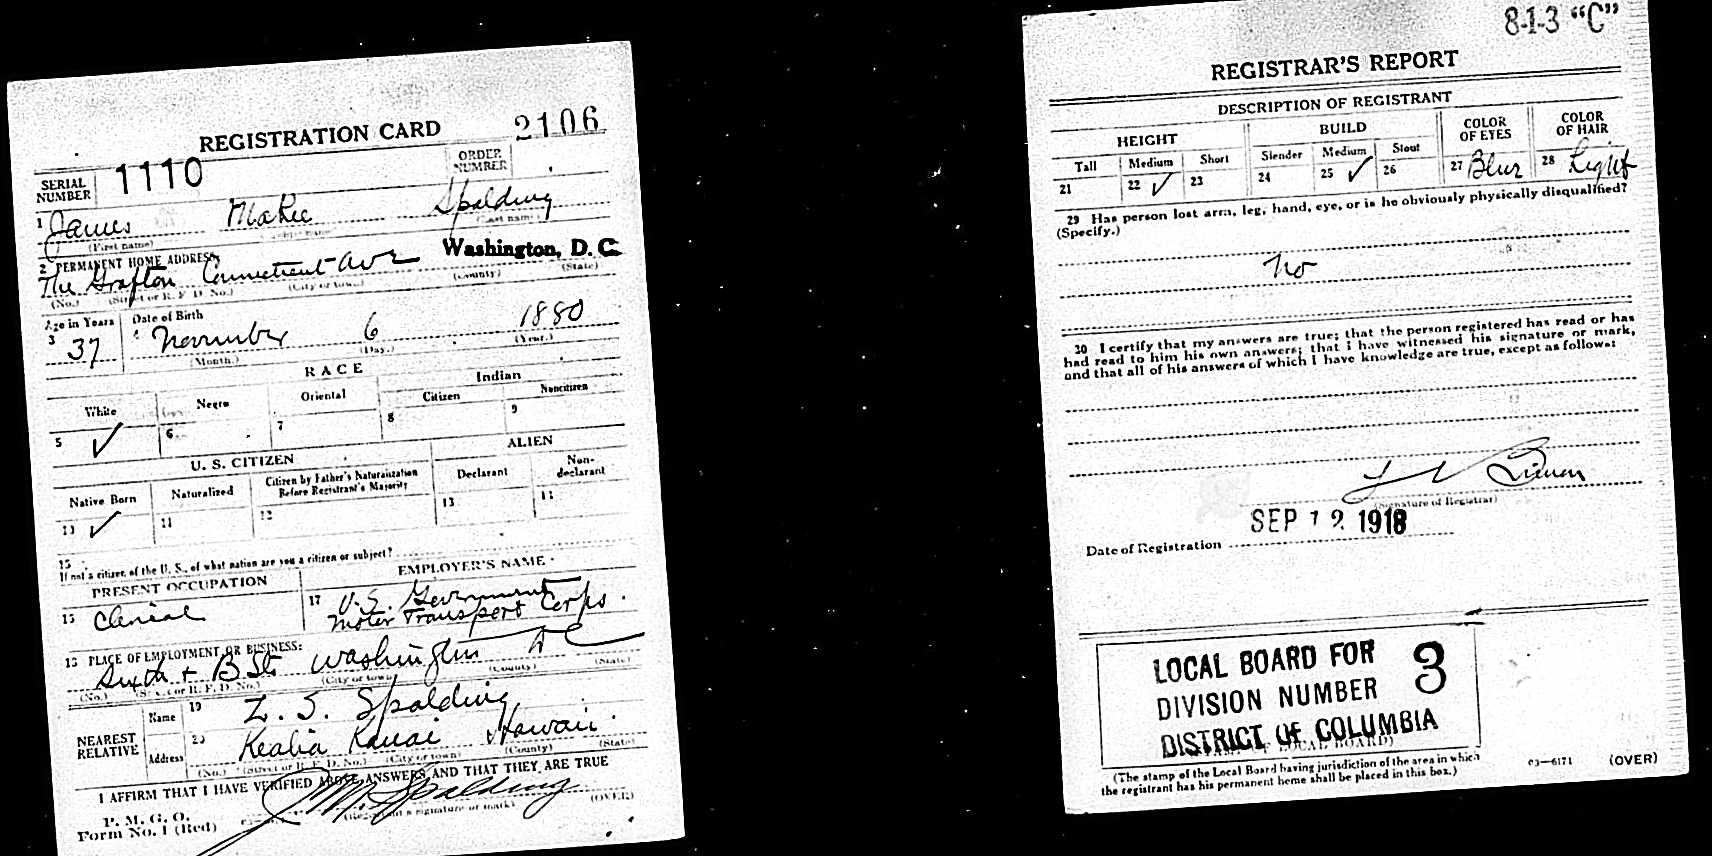 REGISTRATION CARD
2106
SERIAL NUMBER
1110
ORDER NUMBER
1 James McKee Spalding
(First name) (Last name)
2 PERMANENT HOME ADDRESS:
Washington, D. C.
The Grafton Connecticut Ave
(No.) (Street or R. F. D. No.) (City or town) (County) (State)
Age in Years
Date of Birth
3 37
4 November 6 1880
(Month.) (Day.) (Year.)
RACE
White Negro Oriental Indian
Citizen Noncitizen
5 ✓ 6 7 8 9
U. S. CITIZEN ALIEN
Native Born Naturalized Citizen by Father's Naturalization Before Registrant's Majority Declarant Non-declarant
10 ✓ 11 12 13 14
15
If not a citizen of the U. S., of what nation are you a citizen or subject?
PRESENT OCCUPATION EMPLOYER'S NAME
16 Clerical
17 U.S. Government
Motor Transport Corps.
18 PLACE OF EMPLOYMENT OR BUSINESS:
Sixth + B Sts Washington D C
(No.) (Street or R. F. D. No.) (City or town) (County) (State)
NEAREST RELATIVE
Name 19 Z. S. Spalding
Address 20 Kealia Kauai Hawaii
(No.) (Street or R. F. D. No.) (City or town) (County) (State)
I AFFIRM THAT I HAVE VERIFIED ABOVE ANSWERS AND THAT THEY ARE TRUE
P. M. G. O.
Form No. 1 (Red)
J M Spalding
(Registrant's signature or mark) (OVER)
8-1-3 "C"
REGISTRAR'S REPORT
DESCRIPTION OF REGISTRANT
HEIGHT BUILD COLOR OF EYES COLOR OF HAIR
Tall Medium Short Slender Medium Stout
21 22 ✓ 23 24 25 ✓ 26 27 Blue 28 Light
29 Has person lost arm, leg, hand, eye, or is he obviously physically disqualified?
(Specify.)
No
30 I certify that my answers are true; that the person registered has read or has
had read to him his own answers; that I have witnessed his signature or mark,
and that all of his answers of which I have knowledge are true, except as follows:
(Signature of Registrar)
Date of Registration SEP 12 1918
LOCAL BOARD FOR
DIVISION NUMBER 3
DISTRICT OF COLUMBIA
(The stamp of the Local Board having jurisdiction of the area in which
the registrant has his permanent home shall be placed in this box.)
03—6171 (OVER)